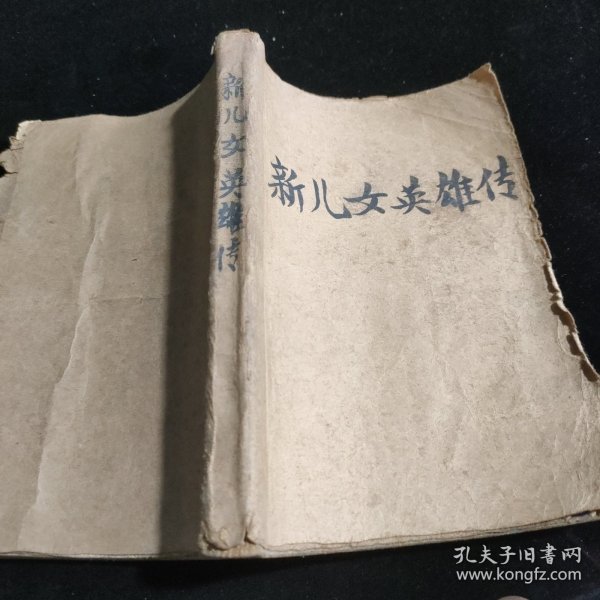 新儿女英雄传
新儿女英雄传
孔夫子旧書网
www.kongfz.com